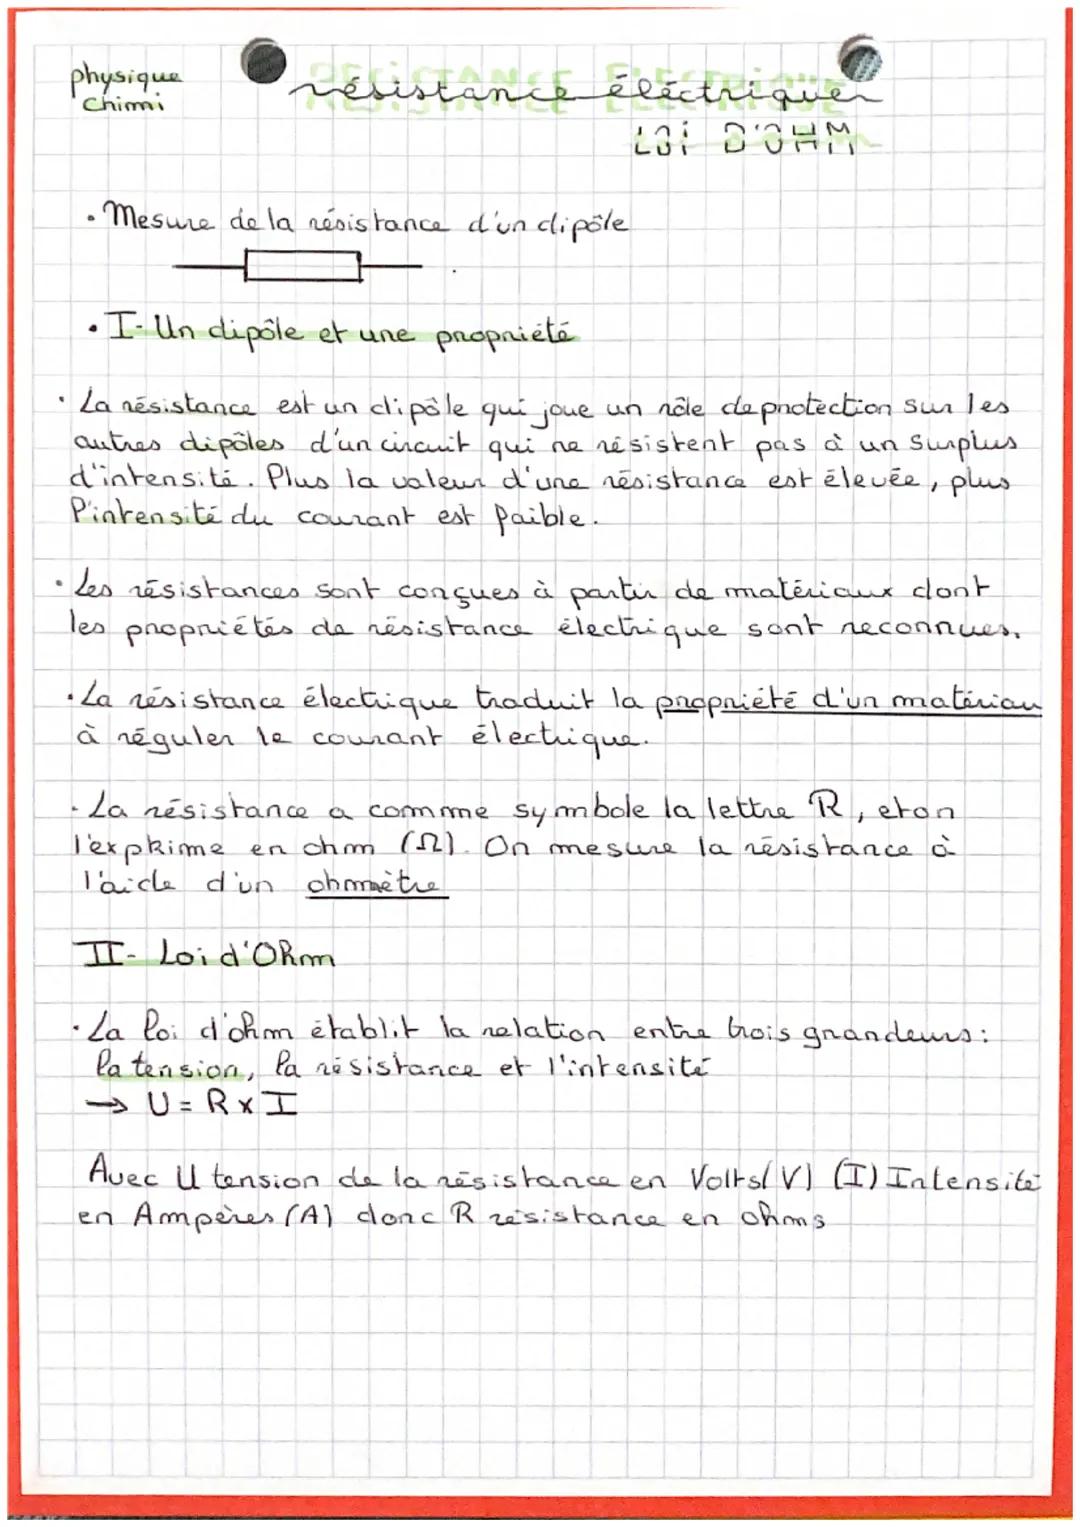 physique
chimi
résistance éléctrique
LOI D'OHM
• Mesure de la résistance d'un dipôle
• I- Un dipôle et une propriété
• La résistance est un dipôle qui joue un rôle de protection sur les
autres dipôles d'un circuit qui ne résistent pas à un surplus
d'intensité. Plus la valeur d'une résistance est élevée, plus
l'intensité du courant est faible.
• Les résistances sont conçues à partir de matériaux dont
les propriétés de résistance électrique sont reconnues.
• La résistance électrique traduit la propriété d'un matériau
à réguler le courant électrique.
- La résistance a comme symbole la lettre R, et on
l'exprime en ohm (Ω). On mesure la résistance à
l'aide d'un ohmmètre
II- Loi d'Ohm
• La loi d'ohm établit la relation entre trois grandeurs:
la tension, la résistance et l'intensité
→ U = R x I
Avec U tension de la résistance en Volts(V) (I) Intensité
en Ampères (A) donc R résistance en ohms